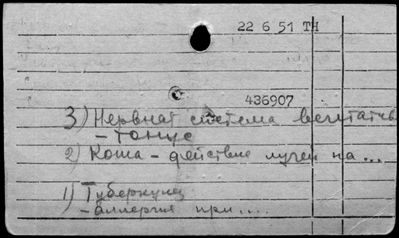 22 6 51 TH
436907
3) Нервная система вегетатив
- тонус
2) Кожа - действие лучей на ...
1) Туберкулез
- аллергия при ....